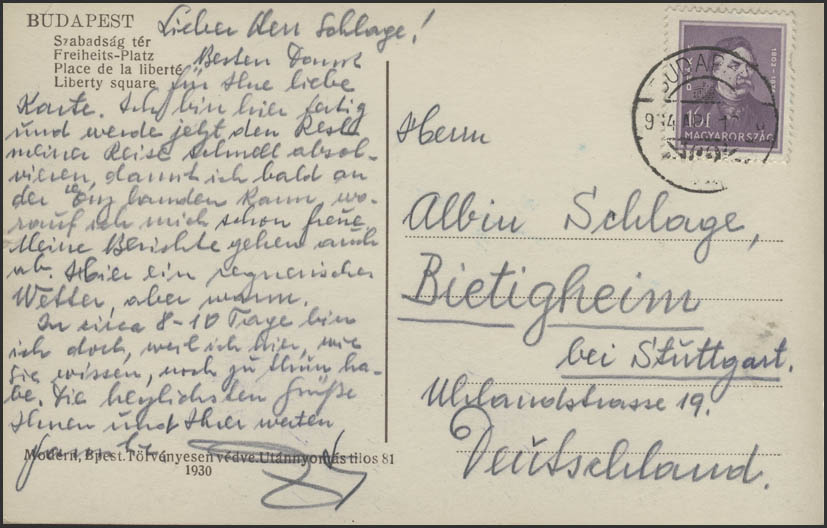 BUDAPEST
Szabadság tér
Freiheits-Platz
Place de la liberté
Liberty square
Lieber Herr Schlage!
Besten Dank
für Ihre liebe
Karte. Ich bin hier fertig
und werde jetzt den Rest
meiner Reise schnell absol-
vieren, damit ich bald an
der Enz landen kann, wo-
rauf ich mich schon freue.
Meine Berichte gehen auch
ab. Hier ein regnerisches
Wetter, aber warm.
In circa 8-10 Tage bin
ich doch, weil ich hier, wie
Sie wissen, noch zu thun ha-
be. Die herzlichsten Grüße
Ihnen und Ihrer werten
Modern, Bpest. Törvényesen védve. Utánnyomás tilos 81
1930
MAGYARORSZÁG
BUDAPEST
Herrn
Albin Schlage,
Bietigheim
bei Stuttgart.
Uhlandstrasse 19.
Deutschland.